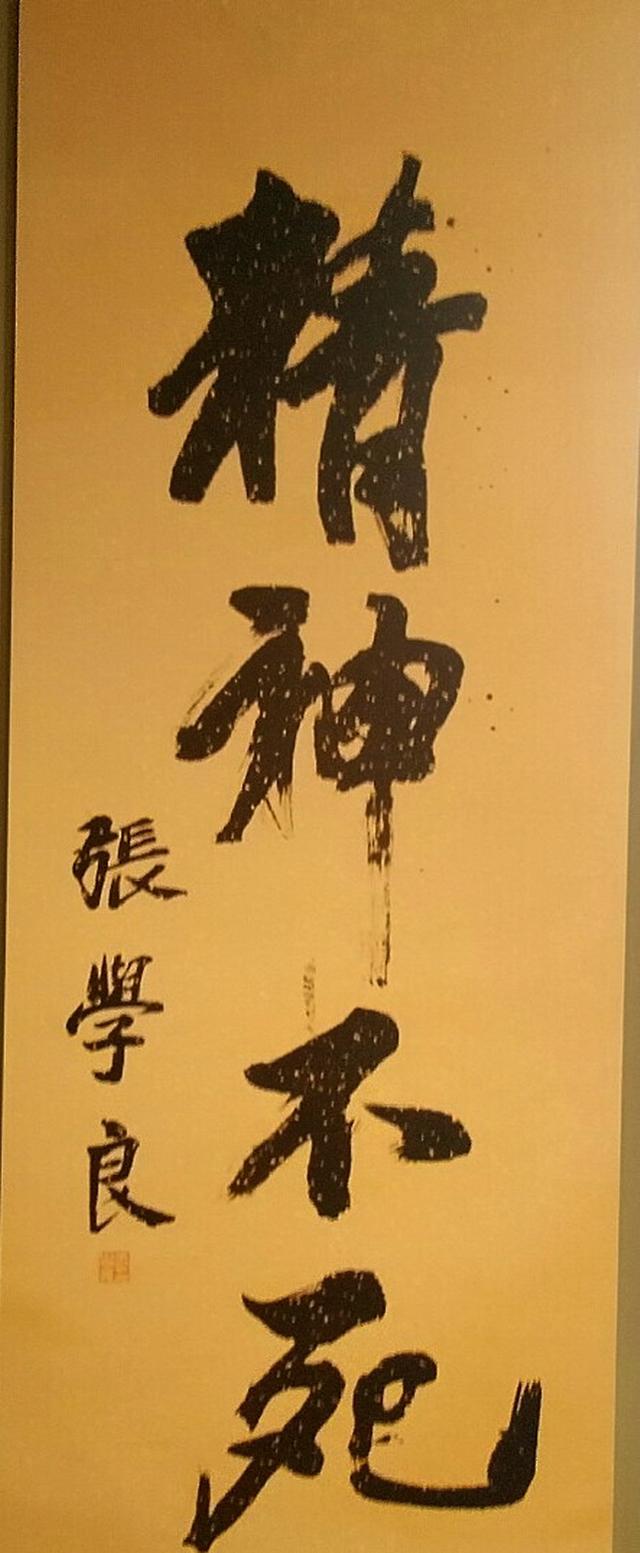 精神不死
張學良